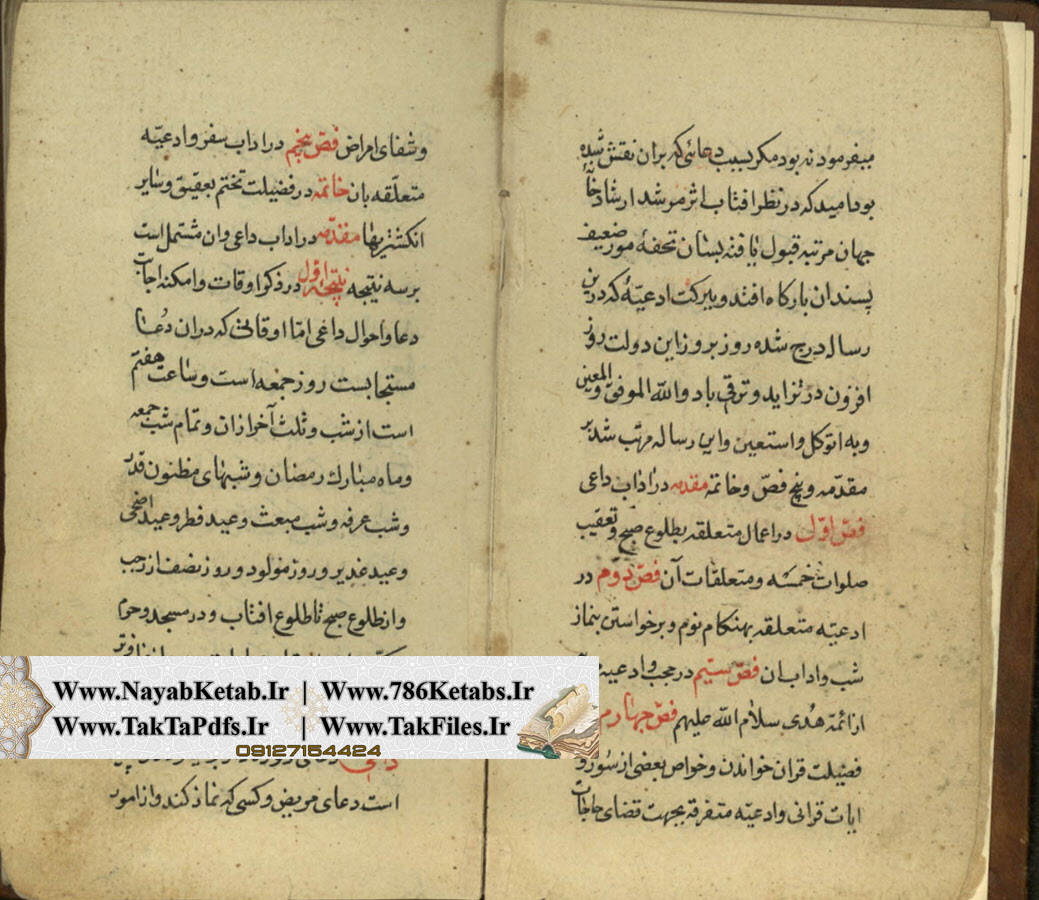 میفرمود نه بود مکر بسبب دعائی که بران نقش شده
بود امید که در نظر افتاب اثر مرشد ارشاد
جهان مرتبه قبول یافته بسان تحفهٔ مور ضعیف
پسندان بارکاه افتد و ببرکت ادعیّهٔ که درین
رساله درج شده روز بروز این دولت روز
افزون در تزاید و ترقی باد والله الموفق والمعین
وبه اتوکل واستعین واین رساله مرتّب شد بر
مقدّمه و پنج فصّ و خاتمه مقدمه در اداب داعی
فصّ اوّل در اعمال متعلقه بطلوع صبح و تعقیب
صلوات خمسه و متعلقات آن فصّ دوّم در
ادعیّه متعلقه بهنکام نوم و برخواستن بنماز
شب و اداب ان فصّ سیّم در حجب و ادعیه
از ائمّه هُدی سلام الله علیهم فصّ چهارم
فضیلت قران خواندن و خواص بعضی از سُوَر و
ایات قرانی و ادعیّه متفرقه بجهت قضای حاجات
وشفای امراض فصّ پنجم در اداب سفر و ادعیّه
متعلّقه بان خاتمه در فضیلت تختم بعقیق و سایر
انکشتریها مقدّمه در اداب داعی وان مشتمل است
بر سه نتیجه نتیجهٔ اوّل در ذکر اوقات و امکنه اجابت
دعا و احوال داعی امّا اوقاتی که دران دُعا
مستجابست روز جمعه است و ساعت هفتم
است از شب و ثلث آخر ازان و تمام شب جمعه
وماه مبارك رمضان و شبهای مظنون قدر
وشب عرفه و شب مبعث و عید فطر و عید اضحی
وعید غدیر و روز مولود و روز نصف از رجب
واز طلوع صبح تا طلوع افتاب و در مسجد و حرم
Www.NayabKetab.Ir | Www.786Ketabs.Ir
Www.TakTaPdfs.Ir | Www.TakFiles.Ir
09127154424
است دعای مریض و کسی که نماز کند و از امور